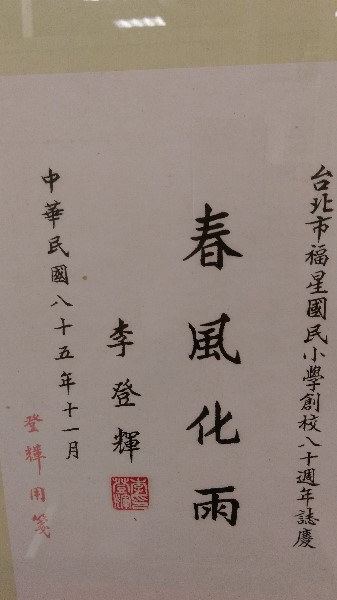 台北市福星國民小學創校八十週年誌慶
春風化雨
李登輝
李登輝
中華民國八十五年十一月
登輝用箋